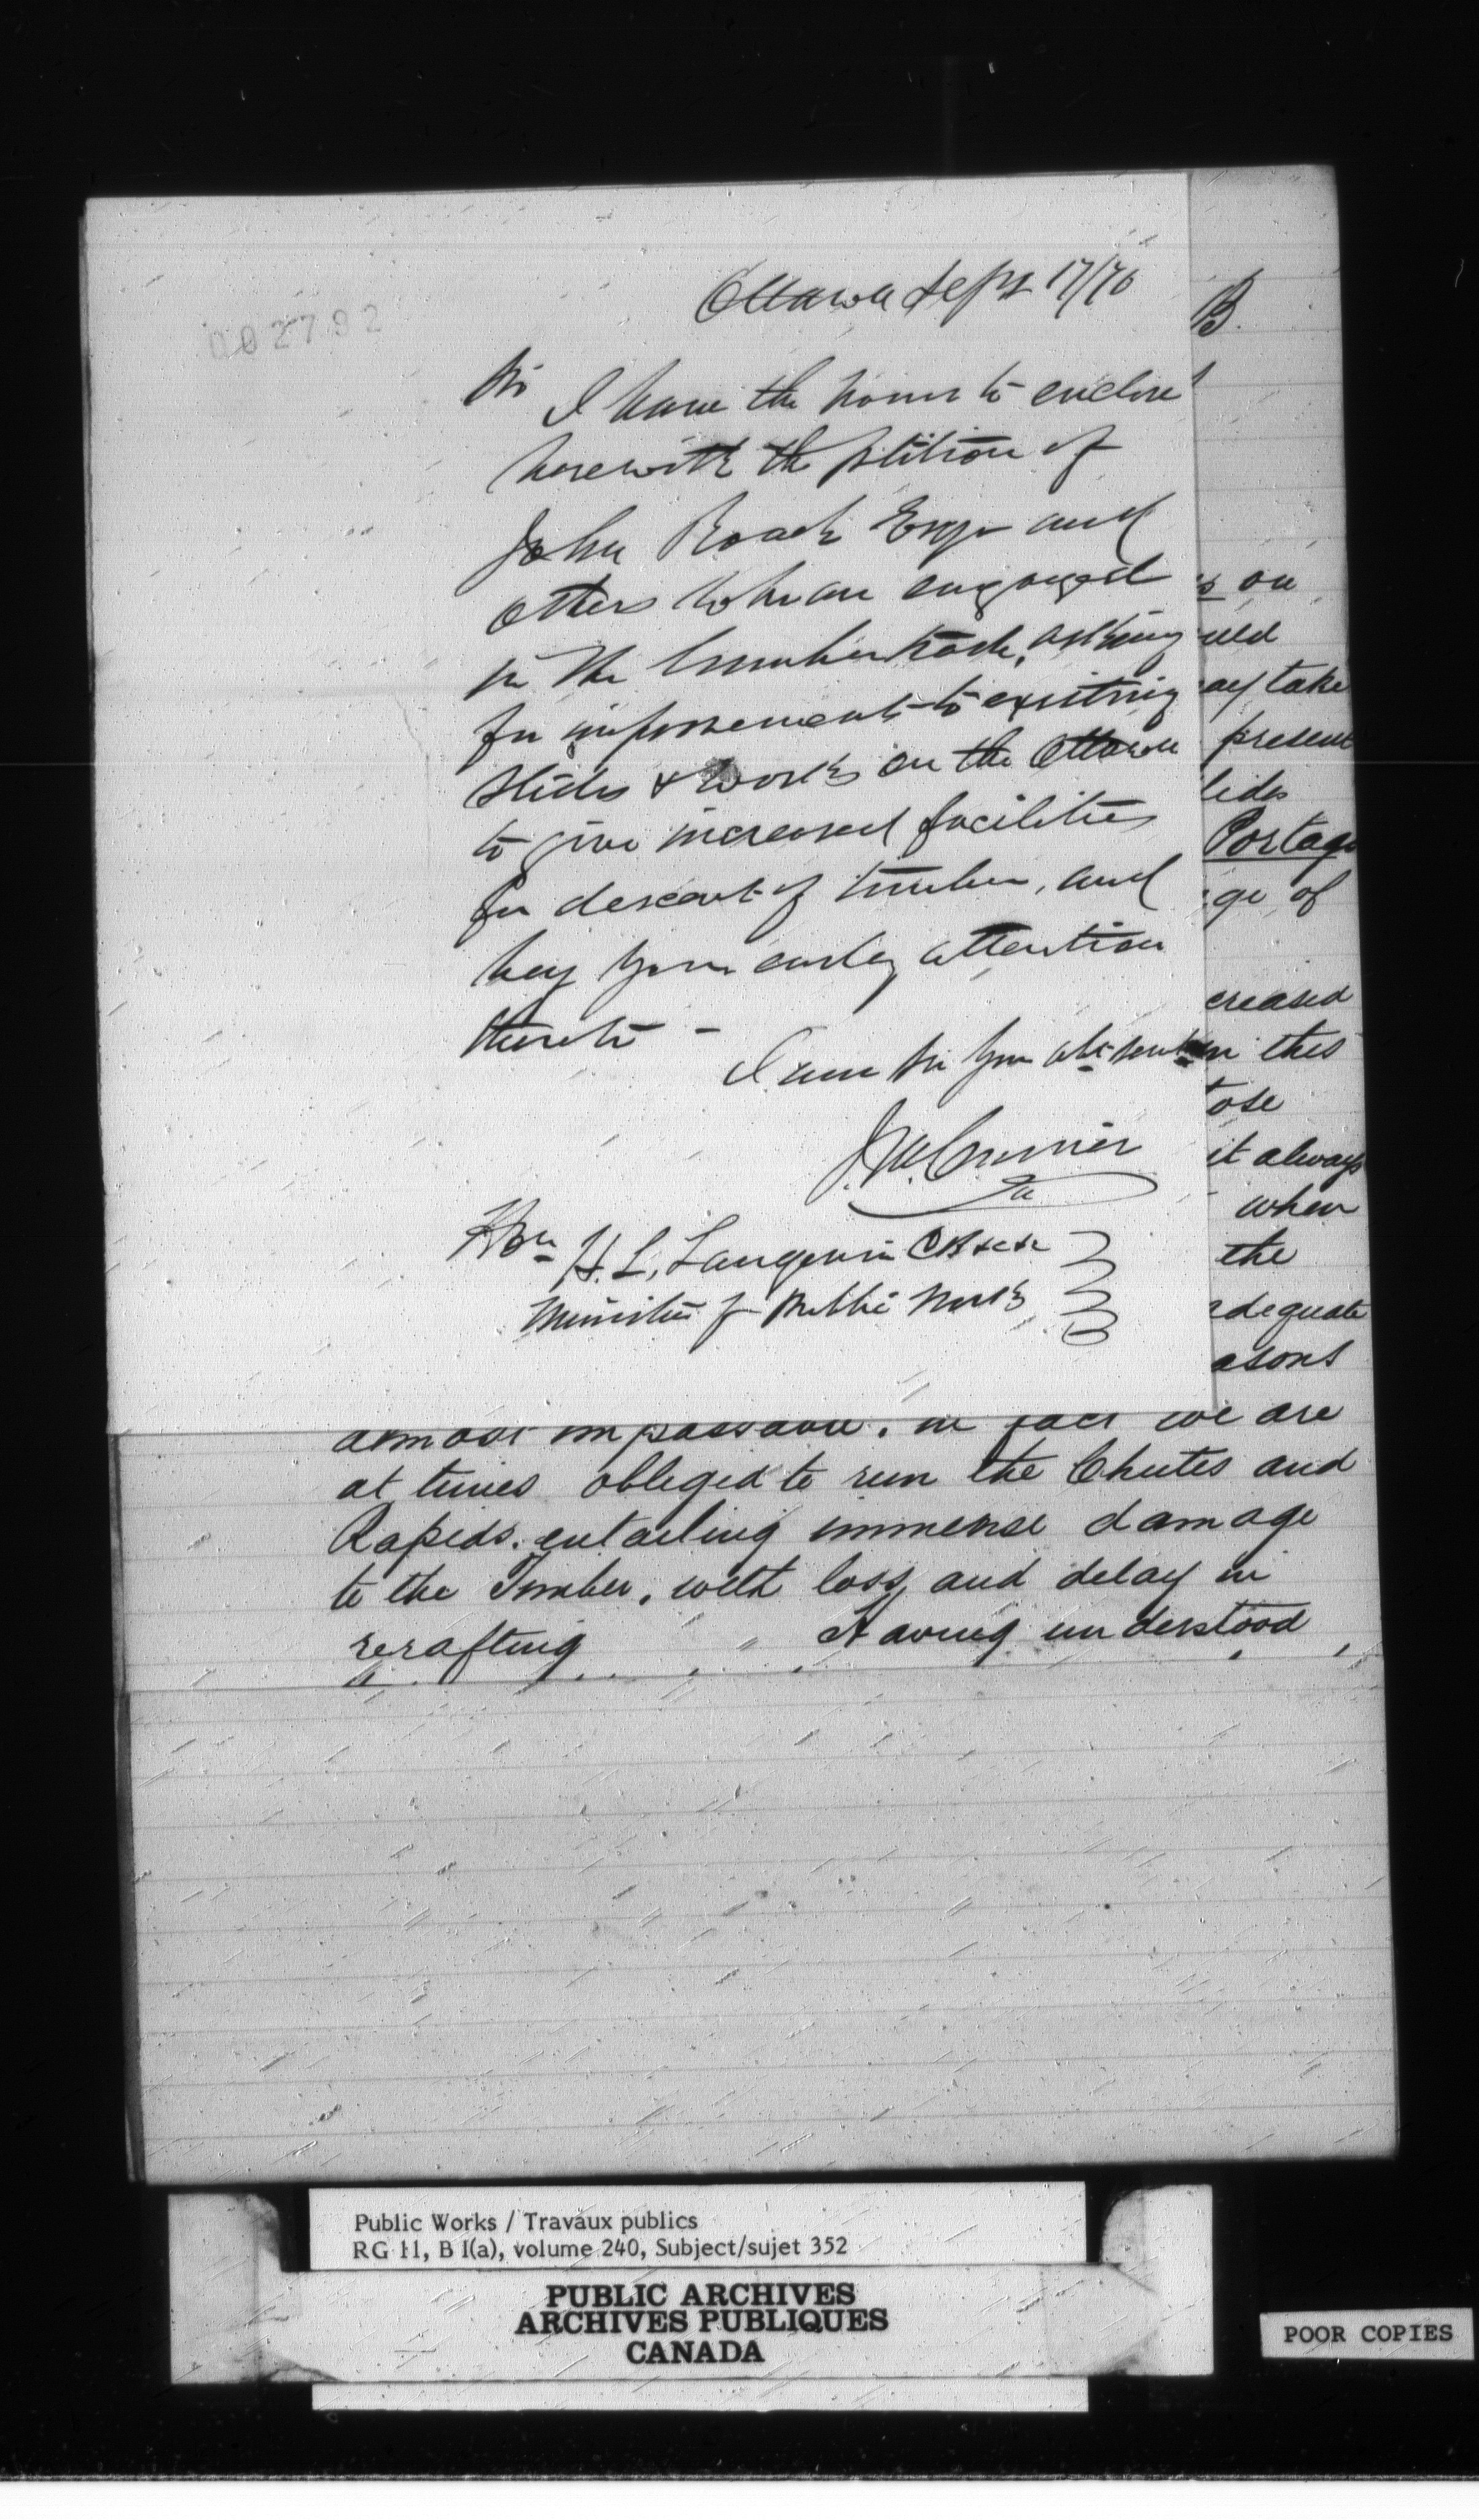 Ottawa Sept 17/70
002792
Sir
I have the honor to enclose
herewith the petition of
John Roach Esqr and
others who are engaged
in the lumber trade, asking
for improvements to existing
slides & works on the Ottawa
to give increased facilities
for descent of timber, and
beg your early attention
thereto -
I am Sir your obt servt
Hon H. L. Langevin
Minister of Public Works
B.
on
uld
ay take
present
lides
Portage
ge of
creased
in this
ose
it always
when
the
adequate
asons
almost impassable. in fact we are
at times obliged to run the Chutes and
Rapids. entailing immense damage
to the Timber, with loss and delay in
rerafting " Having understood
Public Works / Travaux publics
RG 11, B 1(a), volume 240, Subject/sujet 352
PUBLIC ARCHIVES
ARCHIVES PUBLIQUES
CANADA
POOR COPIES